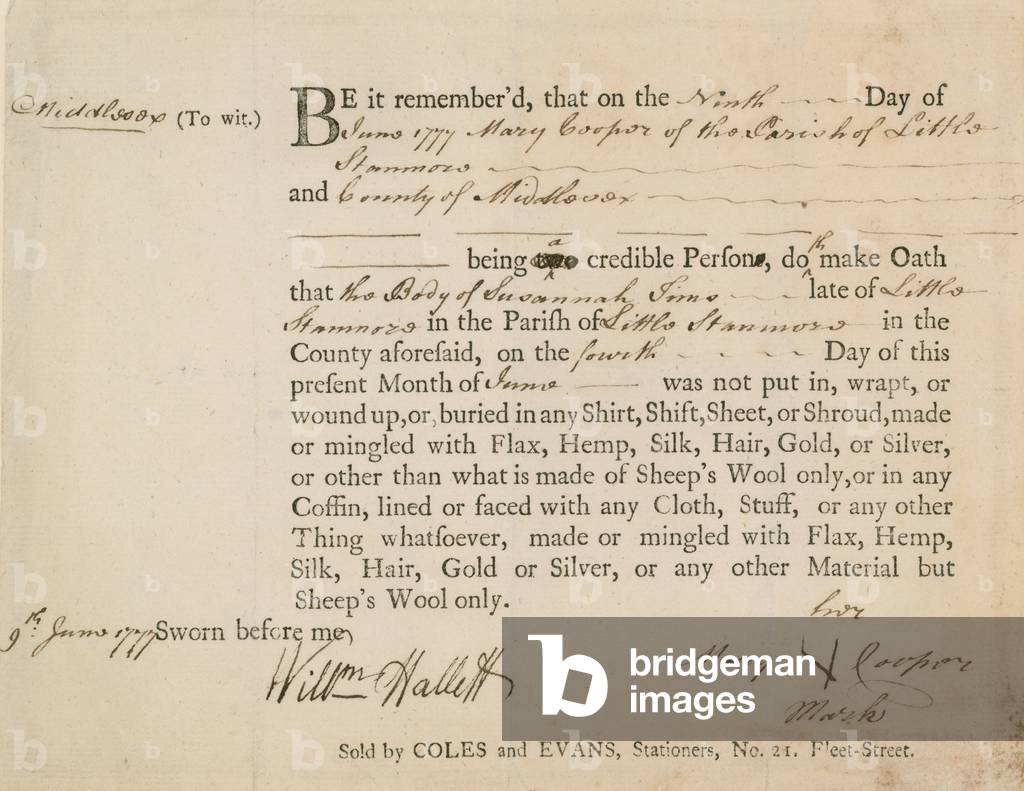 Middlesex (To wit.)
BE it remember'd, that on the Ninth Day of
June 1777 Mary Cooper of the Parish of Little
Stanmore
and County of Middlesex
being a credible Perſon, doth make Oath
that the Body of Susannah Tims late of Little
Stanmore in the Pariſh of Little Stanmore in the
County aforeſaid, on the fourth Day of this
preſent Month of June was not put in, wrapt, or
wound up, or, buried in any Shirt, Shift, Sheet, or Shroud, made
or mingled with Flax, Hemp, Silk, Hair, Gold, or Silver,
or other than what is made of Sheep's Wool only, or in any
Coffin, lined or faced with any Cloth, Stuff, or any other
Thing whatſoever, made or mingled with Flax, Hemp,
Silk, Hair, Gold or Silver, or any other Material but
Sheep's Wool only.
9th. June 1777 Sworn before me,
Willm Hallett
her
Mary X Cooper
Mark
bridgeman
images
Sold by COLES and EVANS, Stationers, No. 21. Fleet-Street.